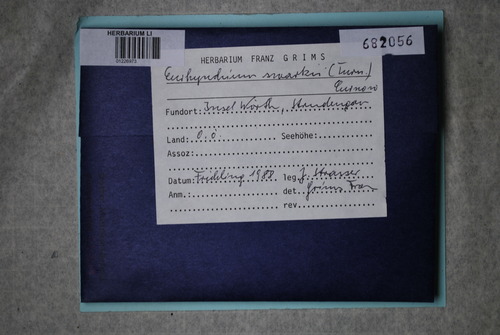 HERBARIUM LI
682056
HERBARIUM FRANZ GRIMS
Eurhynchium swartzii (Turn.)
Curnow
Fundort: Insel Wörth, Strudengau
Land: O.Ö. Seehöhe:
Assoz:
Datum: Frühling 1988 leg. J. Strasser
Anm.: det. Grims Franz
rev.